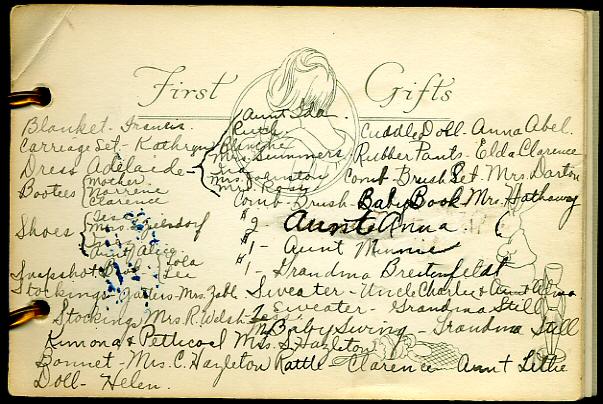 First Gifts
Blanket - Francis.
Carriage Set - Kathryn
Dress Adelaide
Aunt Ida.
Ruth
Blanche
Mrs. Summers
Mrs. Johnston
Mrs. Rose
Bootees
Mother
Norrene
Clarence
Shoes
Tess
Aunt Alice
Snapshot Lola
Lee
Stockings - Garters - Mrs. Zabl
Stockings Mrs. R. Welsh
Kimona & Petticoat Mrs. S. Hazleton
Bonnet - Mrs. C. Hazleton
Doll - Helen.
Cuddle Doll - Anna Abel.
Rubber Pants - Elda Clarence
Comb - Brush Set - Mrs. Darton
Comb - Brush - Baby Book Mrs. Hathaway
$2 - Aunt Anna.
$1 - Aunt Minnie
$1 - Grandma Breitenfeldt
Sweater - Uncle Charlie & Aunt Alma
Sweater - Grandma Still
Baby Swing - Grandma Still
Rattle - Clarence Aunt Lithe